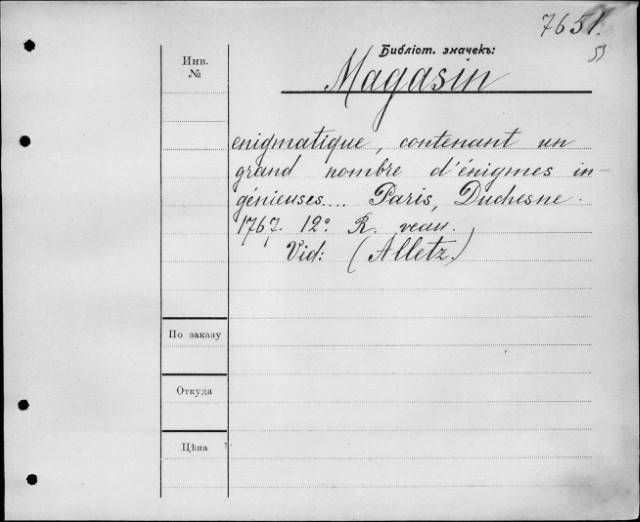 7651.
53
Библіот. значекъ:
Инв.
№
Magasin
enigmatique, contenant un
grand nombre d'énigmes in-
génieuses.... Paris, Duchesne.
1767. 12º R. veau.
Vid: (Alletz.)
По заказу
Откуда
Цѣна